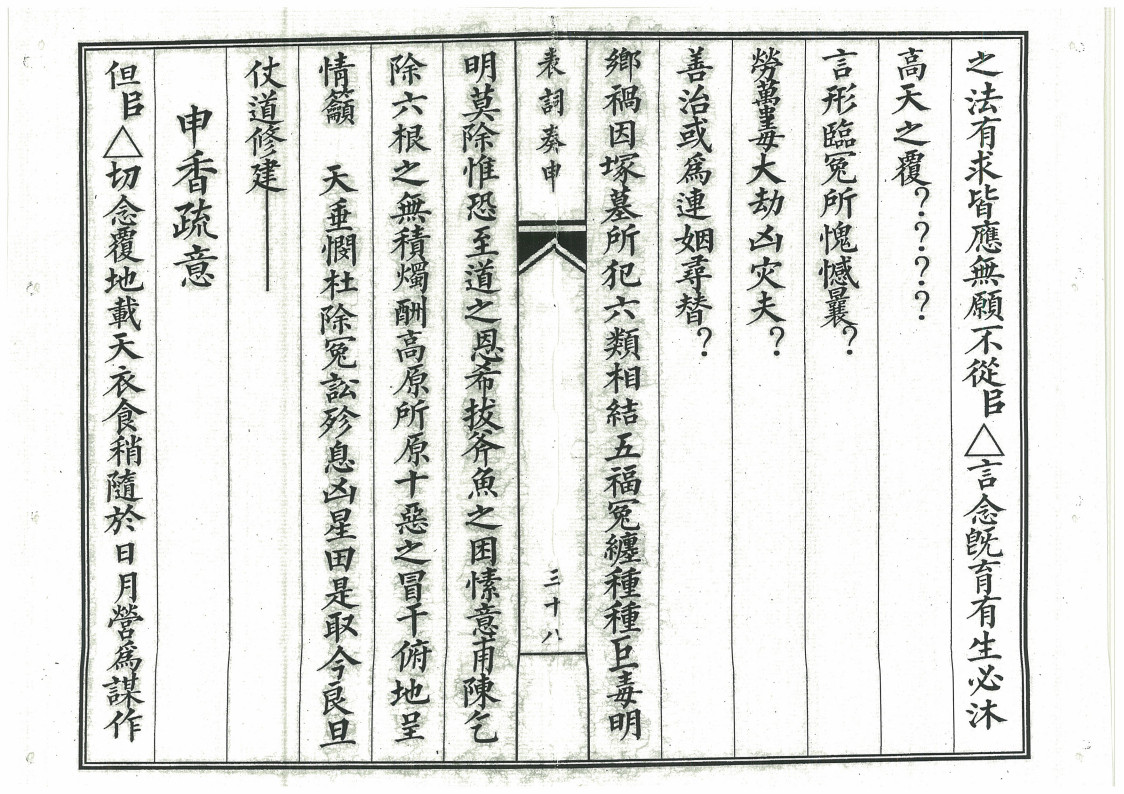 之法有求皆應無願不從臣△言念既育有生必沐
高天之覆？？？？
言形臨冤所愧憾曩？
勞萬毒大劫凶灾夫？
善治或爲連姻尋替？
鄉禍因塚墓所犯六類相結五福冤纏種種巨毒明
表詞奏申
三十八
明莫除惟恐至道之恩希拔斧魚之困愫意甫陳乞
除六根之無積燭酬高原所原十惡之冒干俯地呈
情籲　天垂憫杜除冤訟殄息凶星田是取今良旦
仗道修建
申香疏意
但臣△切念覆地載天衣食稍隨於日月營爲謀作